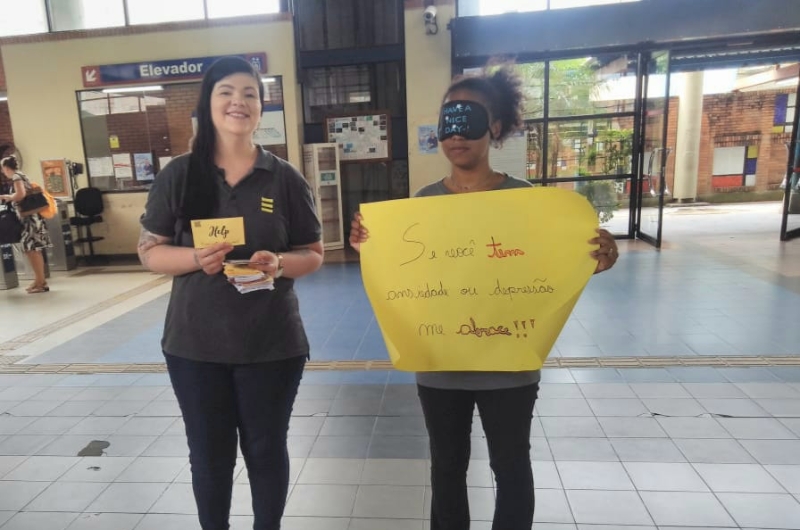 Elevador
HAVE A
NICE
DAY
Help
Se você tem
ansiedade ou depressão
me abrace!!!